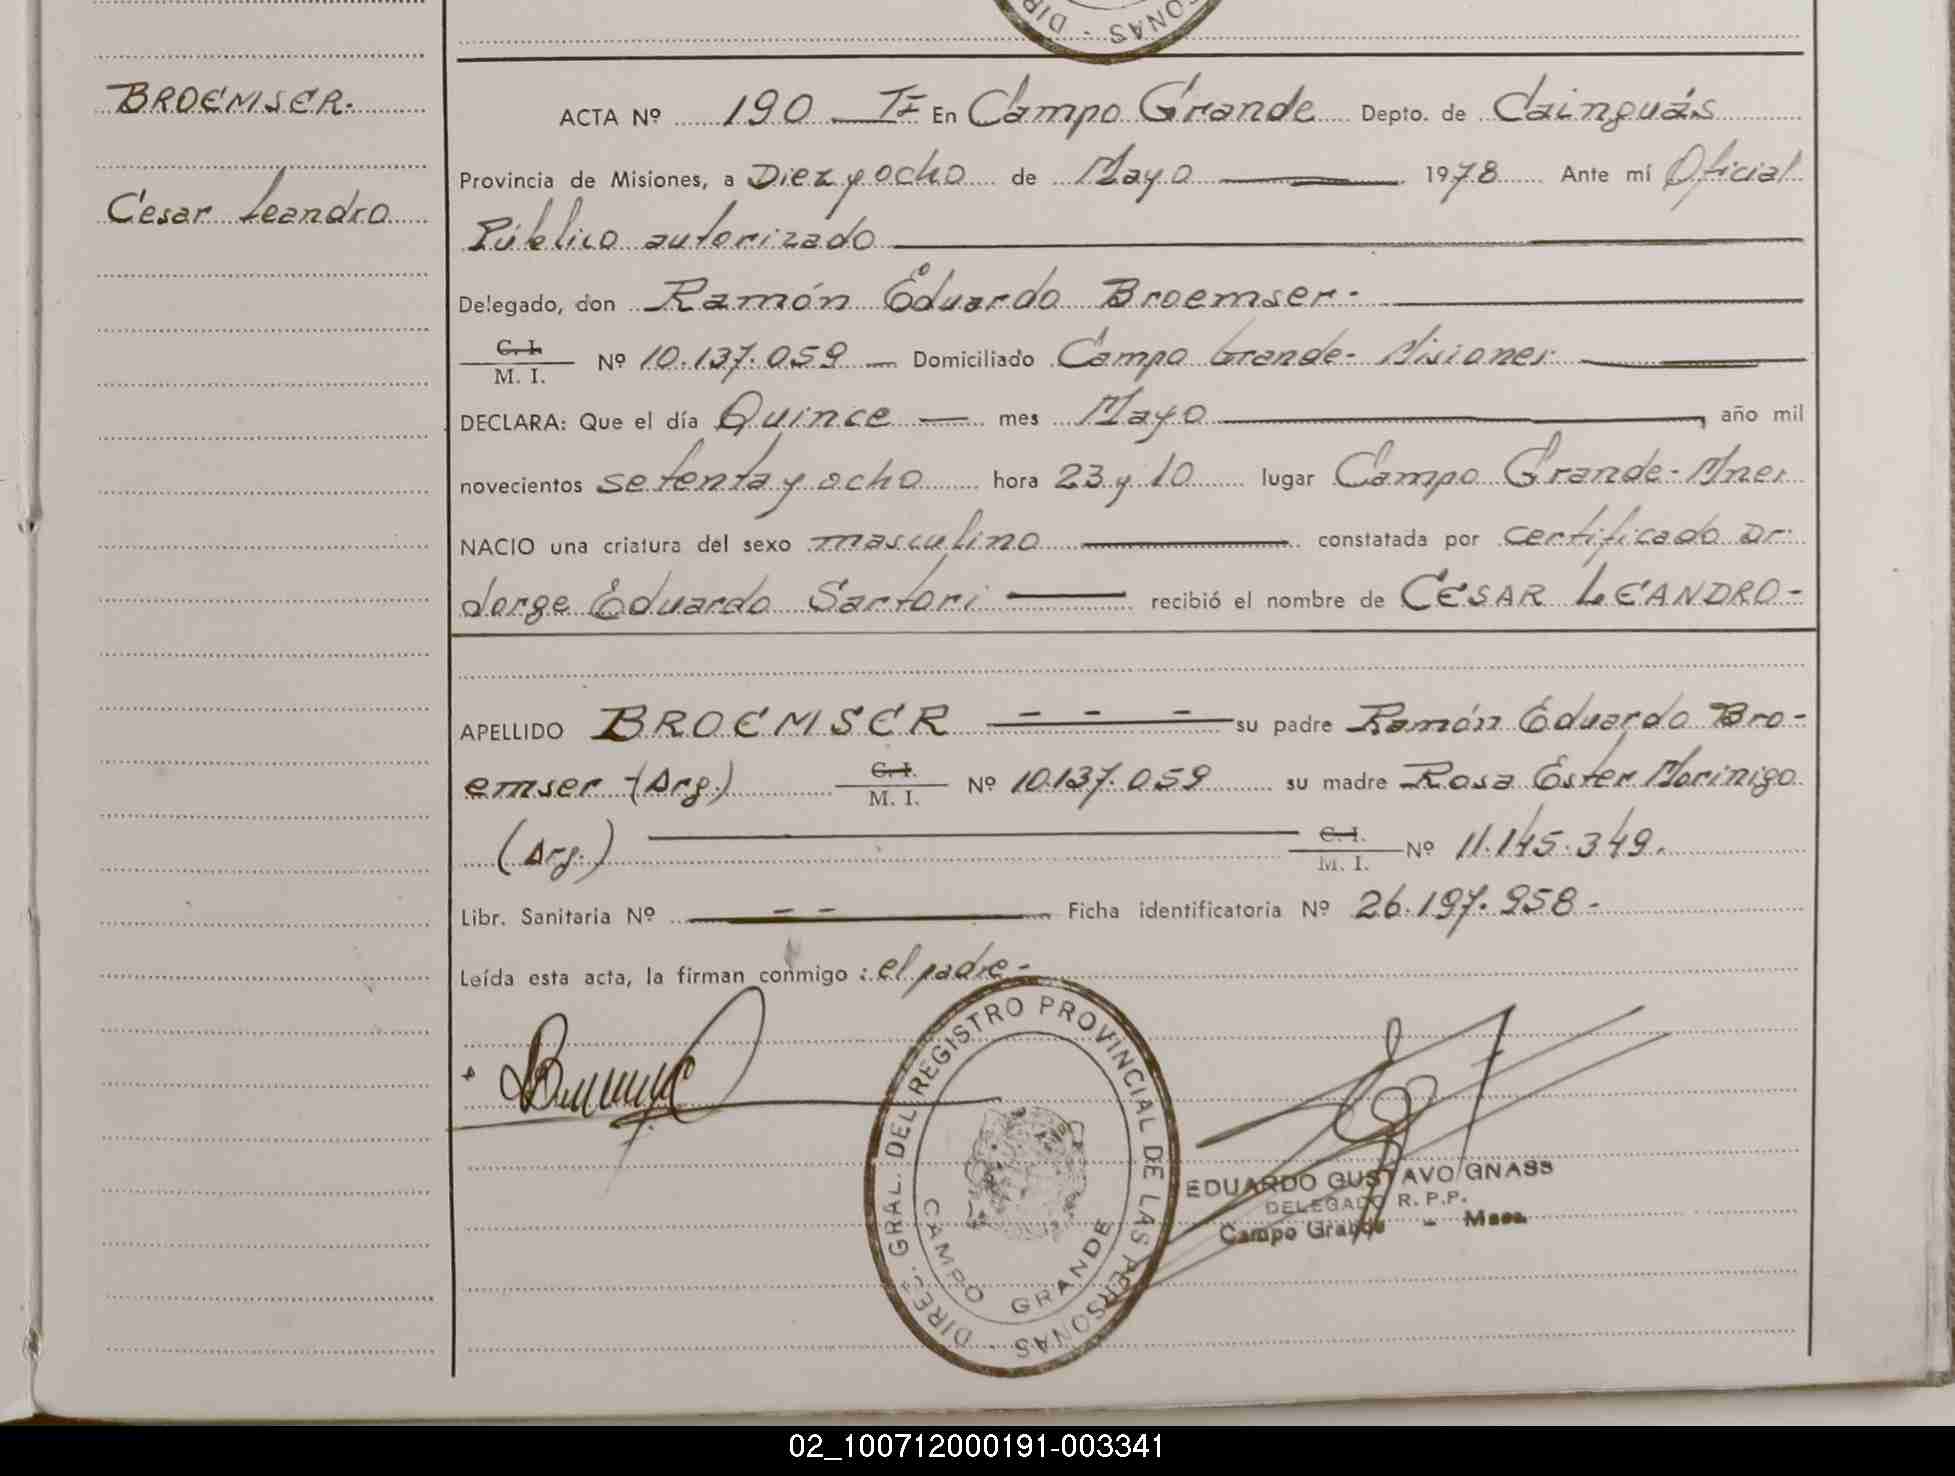 BROEMSER.
Cesar Leandro
ACTA Nº 190 TI En Campo Grande Depto. de Cainguás
Provincia de Misiones, a Diez y ocho de Mayo 1978 Ante mí Oficial
Público autorizado
Delegado, don Ramón Eduardo Broemser.-
C. I.
M. I. Nº 10.137.059 Domiciliado Campo Grande- Misiones
DECLARA: Que el día Quince mes Mayo, año mil
novecientos setenta y ocho hora 23 y 10 lugar Campo Grande- Mnes
NACIO una criatura del sexo masculino constatada por certificado Dr.
Jorge Eduardo Sartori recibió el nombre de CESAR LEANDRO-
APELLIDO BROEMSER - - - su padre Ramón Eduardo Bro-
emser-(Arg.) C. I. M. I. Nº 10.137.059 su madre Rosa Ester Morinigo
(Arg.) C. I. M. I. Nº 11.145.349.
Libr. Sanitaria Nº - - Ficha identificatoria Nº 26.197.958-
Leída esta acta, la firman conmigo : el padre-
DIREC. GRAL. DEL REGISTRO PROVINCIAL DE LAS PERSONAS
CAMPO GRANDE
EDUARDO GUSTAVO GNASS
DELEGADO R. P.P.
Campo Grande - Mnes.
02_100712000191-003341